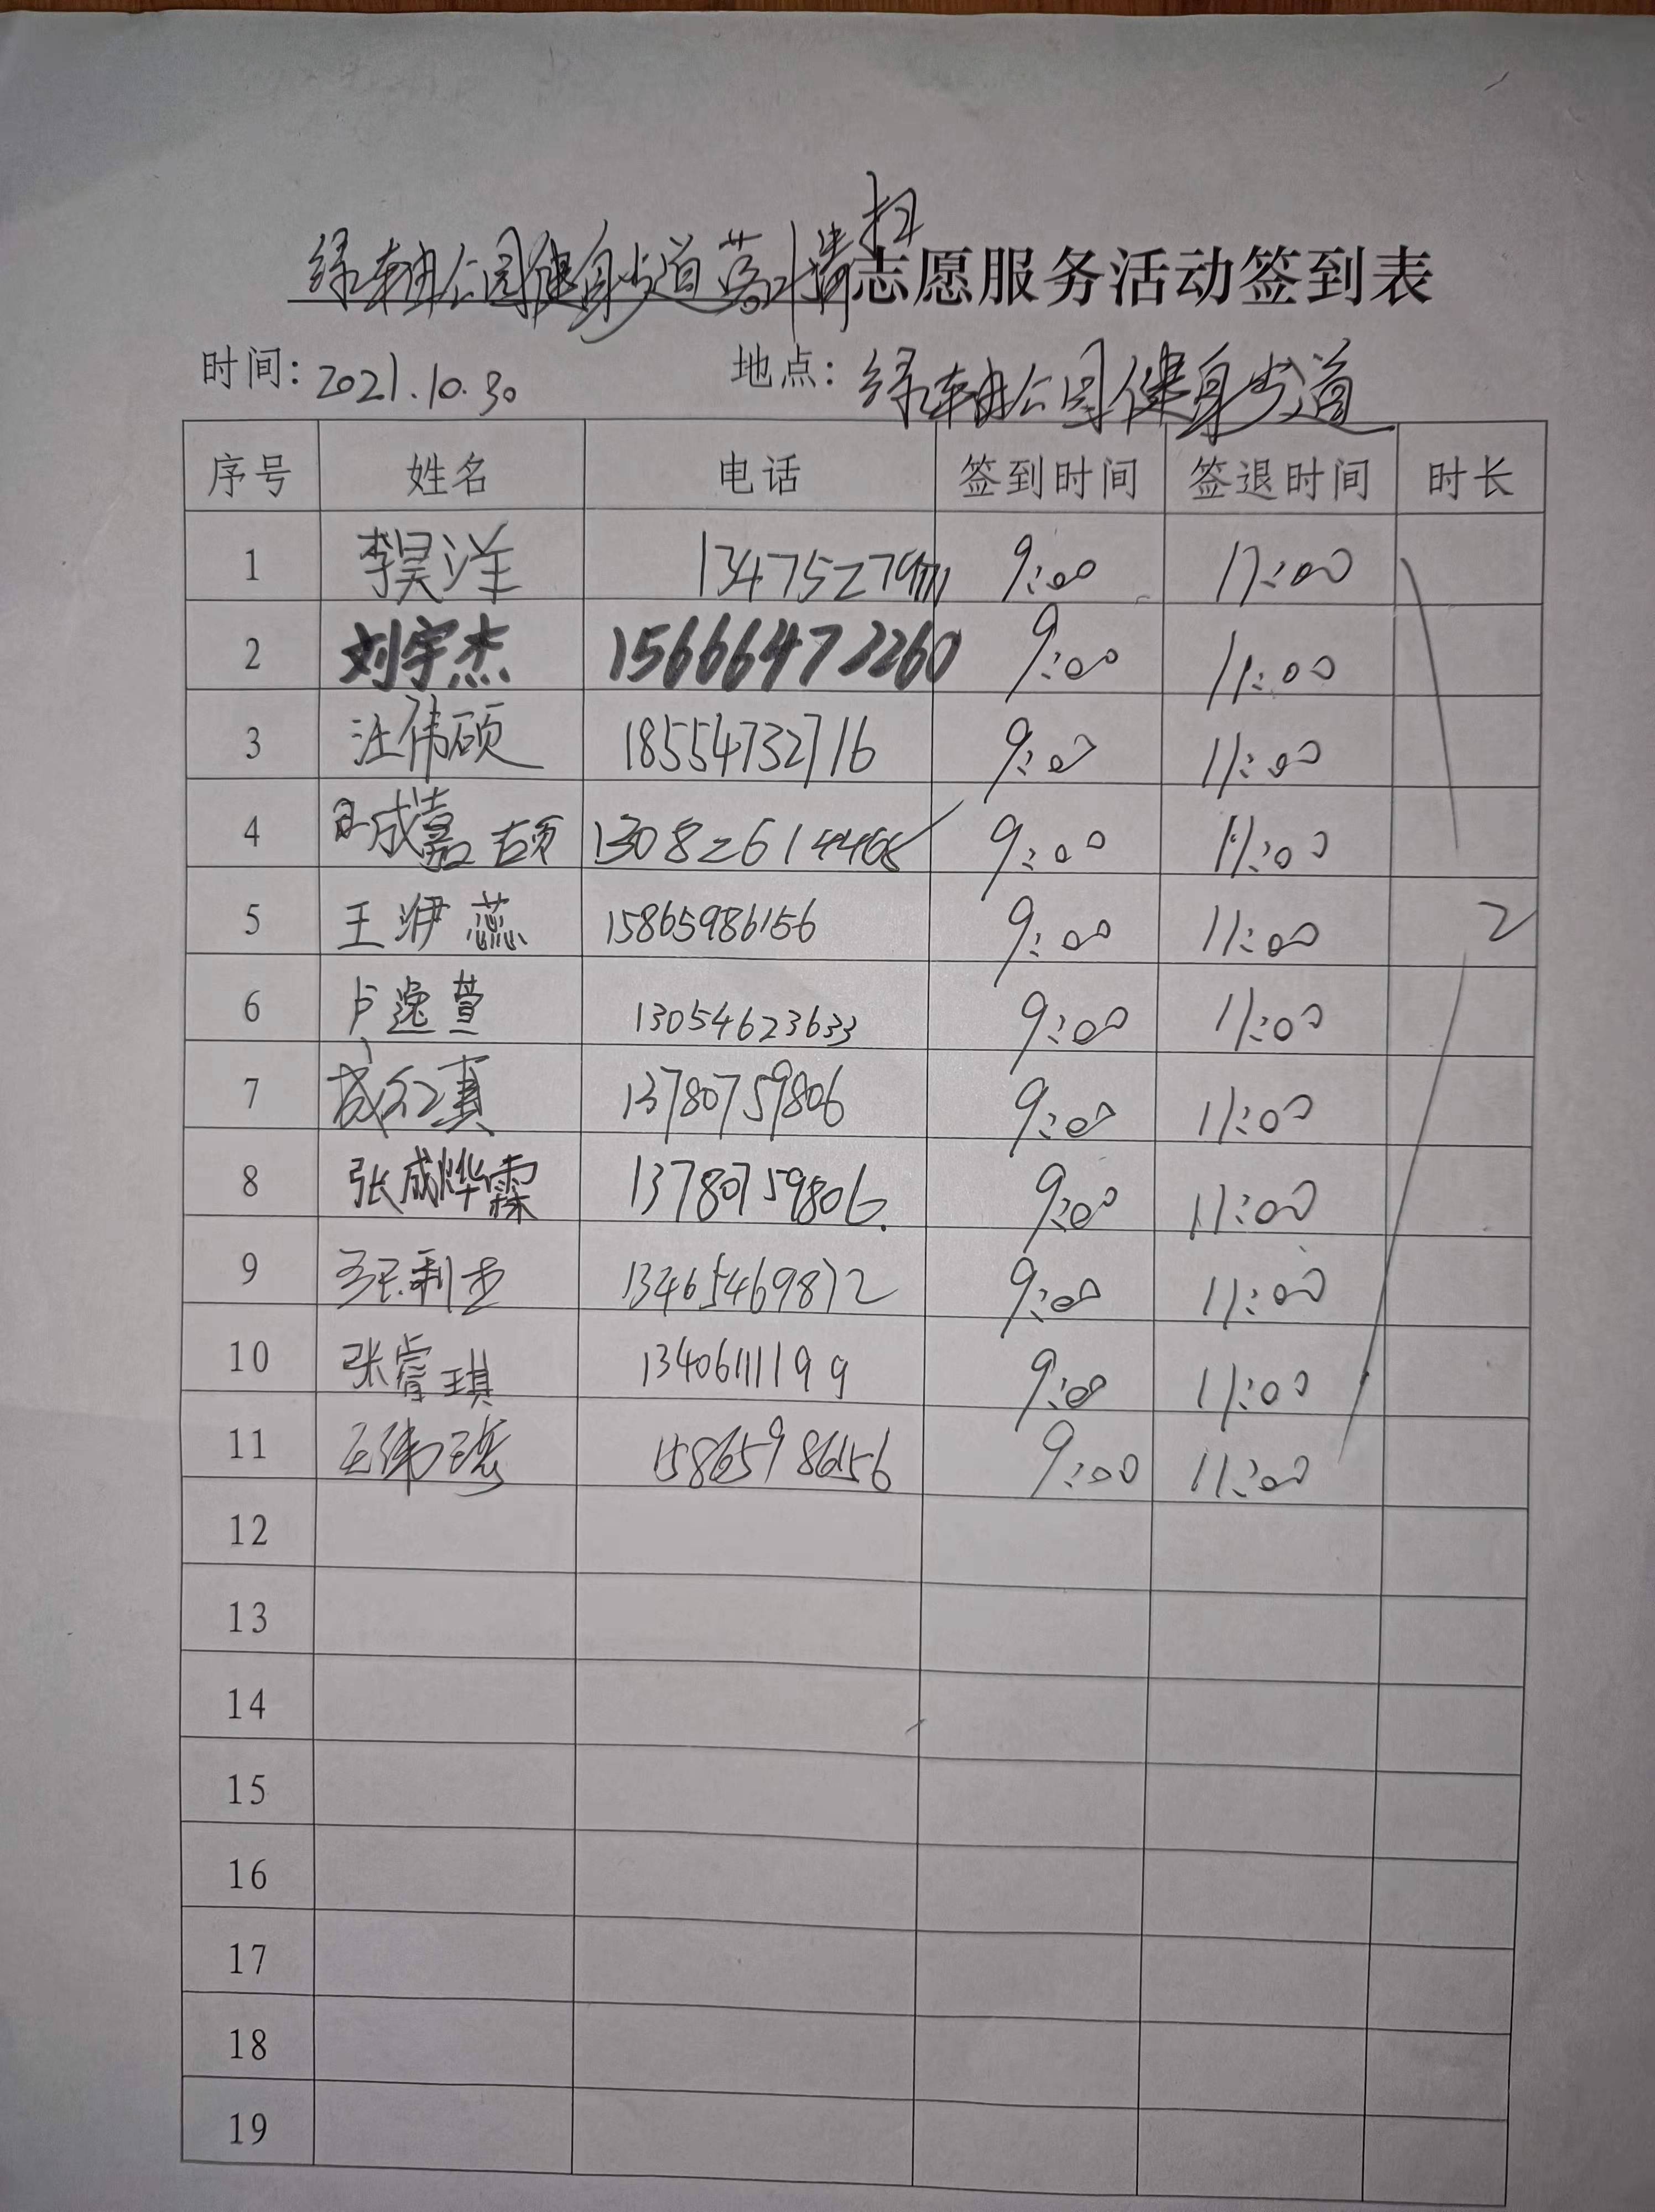 绿轴公园健身步道落叶清扫志愿服务活动签到表
时间：2021.10.30 地点：绿轴公园健身步道
序号 姓名 电话 签到时间 签退时间 时长
1 李昊洋 9:00 11:00
2 刘宇杰 15666473260 9:00 11:00
3 汪伟硕 18554732716 9:00 11:00
4 9:00 11:00
5 王洢蕊 15865986156 9:00 11:00 2
6 卢逸萱 13054623633 9:00 11:00
7 13780759806 9:00 11:00
8 张成烨霖 13780759806. 9:00 11:00
9 13465469872 9:00 11:00
10 张睿琪 13406111199 9:00 11:00
11 15865986156 9:00 11:00
12
13
14
15
16
17
18
19